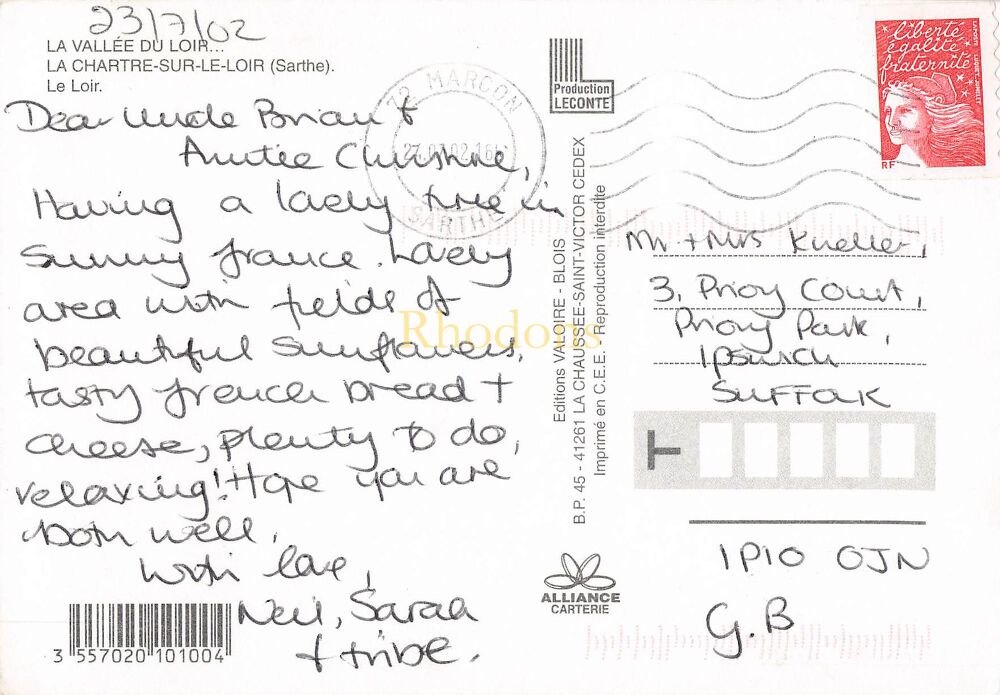 23/7/02
LA VALLÉE DU LOIR...
LA CHARTRE-SUR-LE-LOIR (Sarthe).
Le Loir.
Dear Uncle Brian +
Auntie Christine,
Having a lovely time in
Sunny france. Lovely
area with fields of
beautiful sunflowers,
tasty french bread +
cheese, plenty to do,
relaxing! Hope you are
both well.
With love,
Neil, Sarah
+ tribe.
3 557020 101004
Production
LECONTE
Editions VALOIRE - BLOIS
B.P. 45 - 41261 LA CHAUSSÉE-SAINT-VICTOR CEDEX
Imprimé en C.E.E. Reproduction interdite
ALLIANCE
CARTERIE
72 MARCON
27.07.02 16
SARTHE
liberté
égalité
fraternité
LA POSTE
RF
Mr + Mrs Kneller,
3, Priory Court,
Priory Park,
Ipswich
SUFFOLK
T
IP10 0JN
G.B
Rhodons